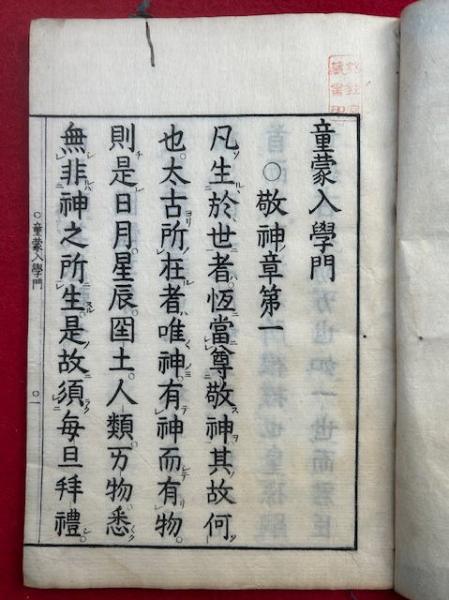 童蒙入學門
○敬神章第一
凡生於世者恆當尊敬神其故何
也太古所在者唯神有神而有物
則是日月星辰囯土人類万物悉
無非神之所生是故須每旦拜禮
○童蒙入學門　○一